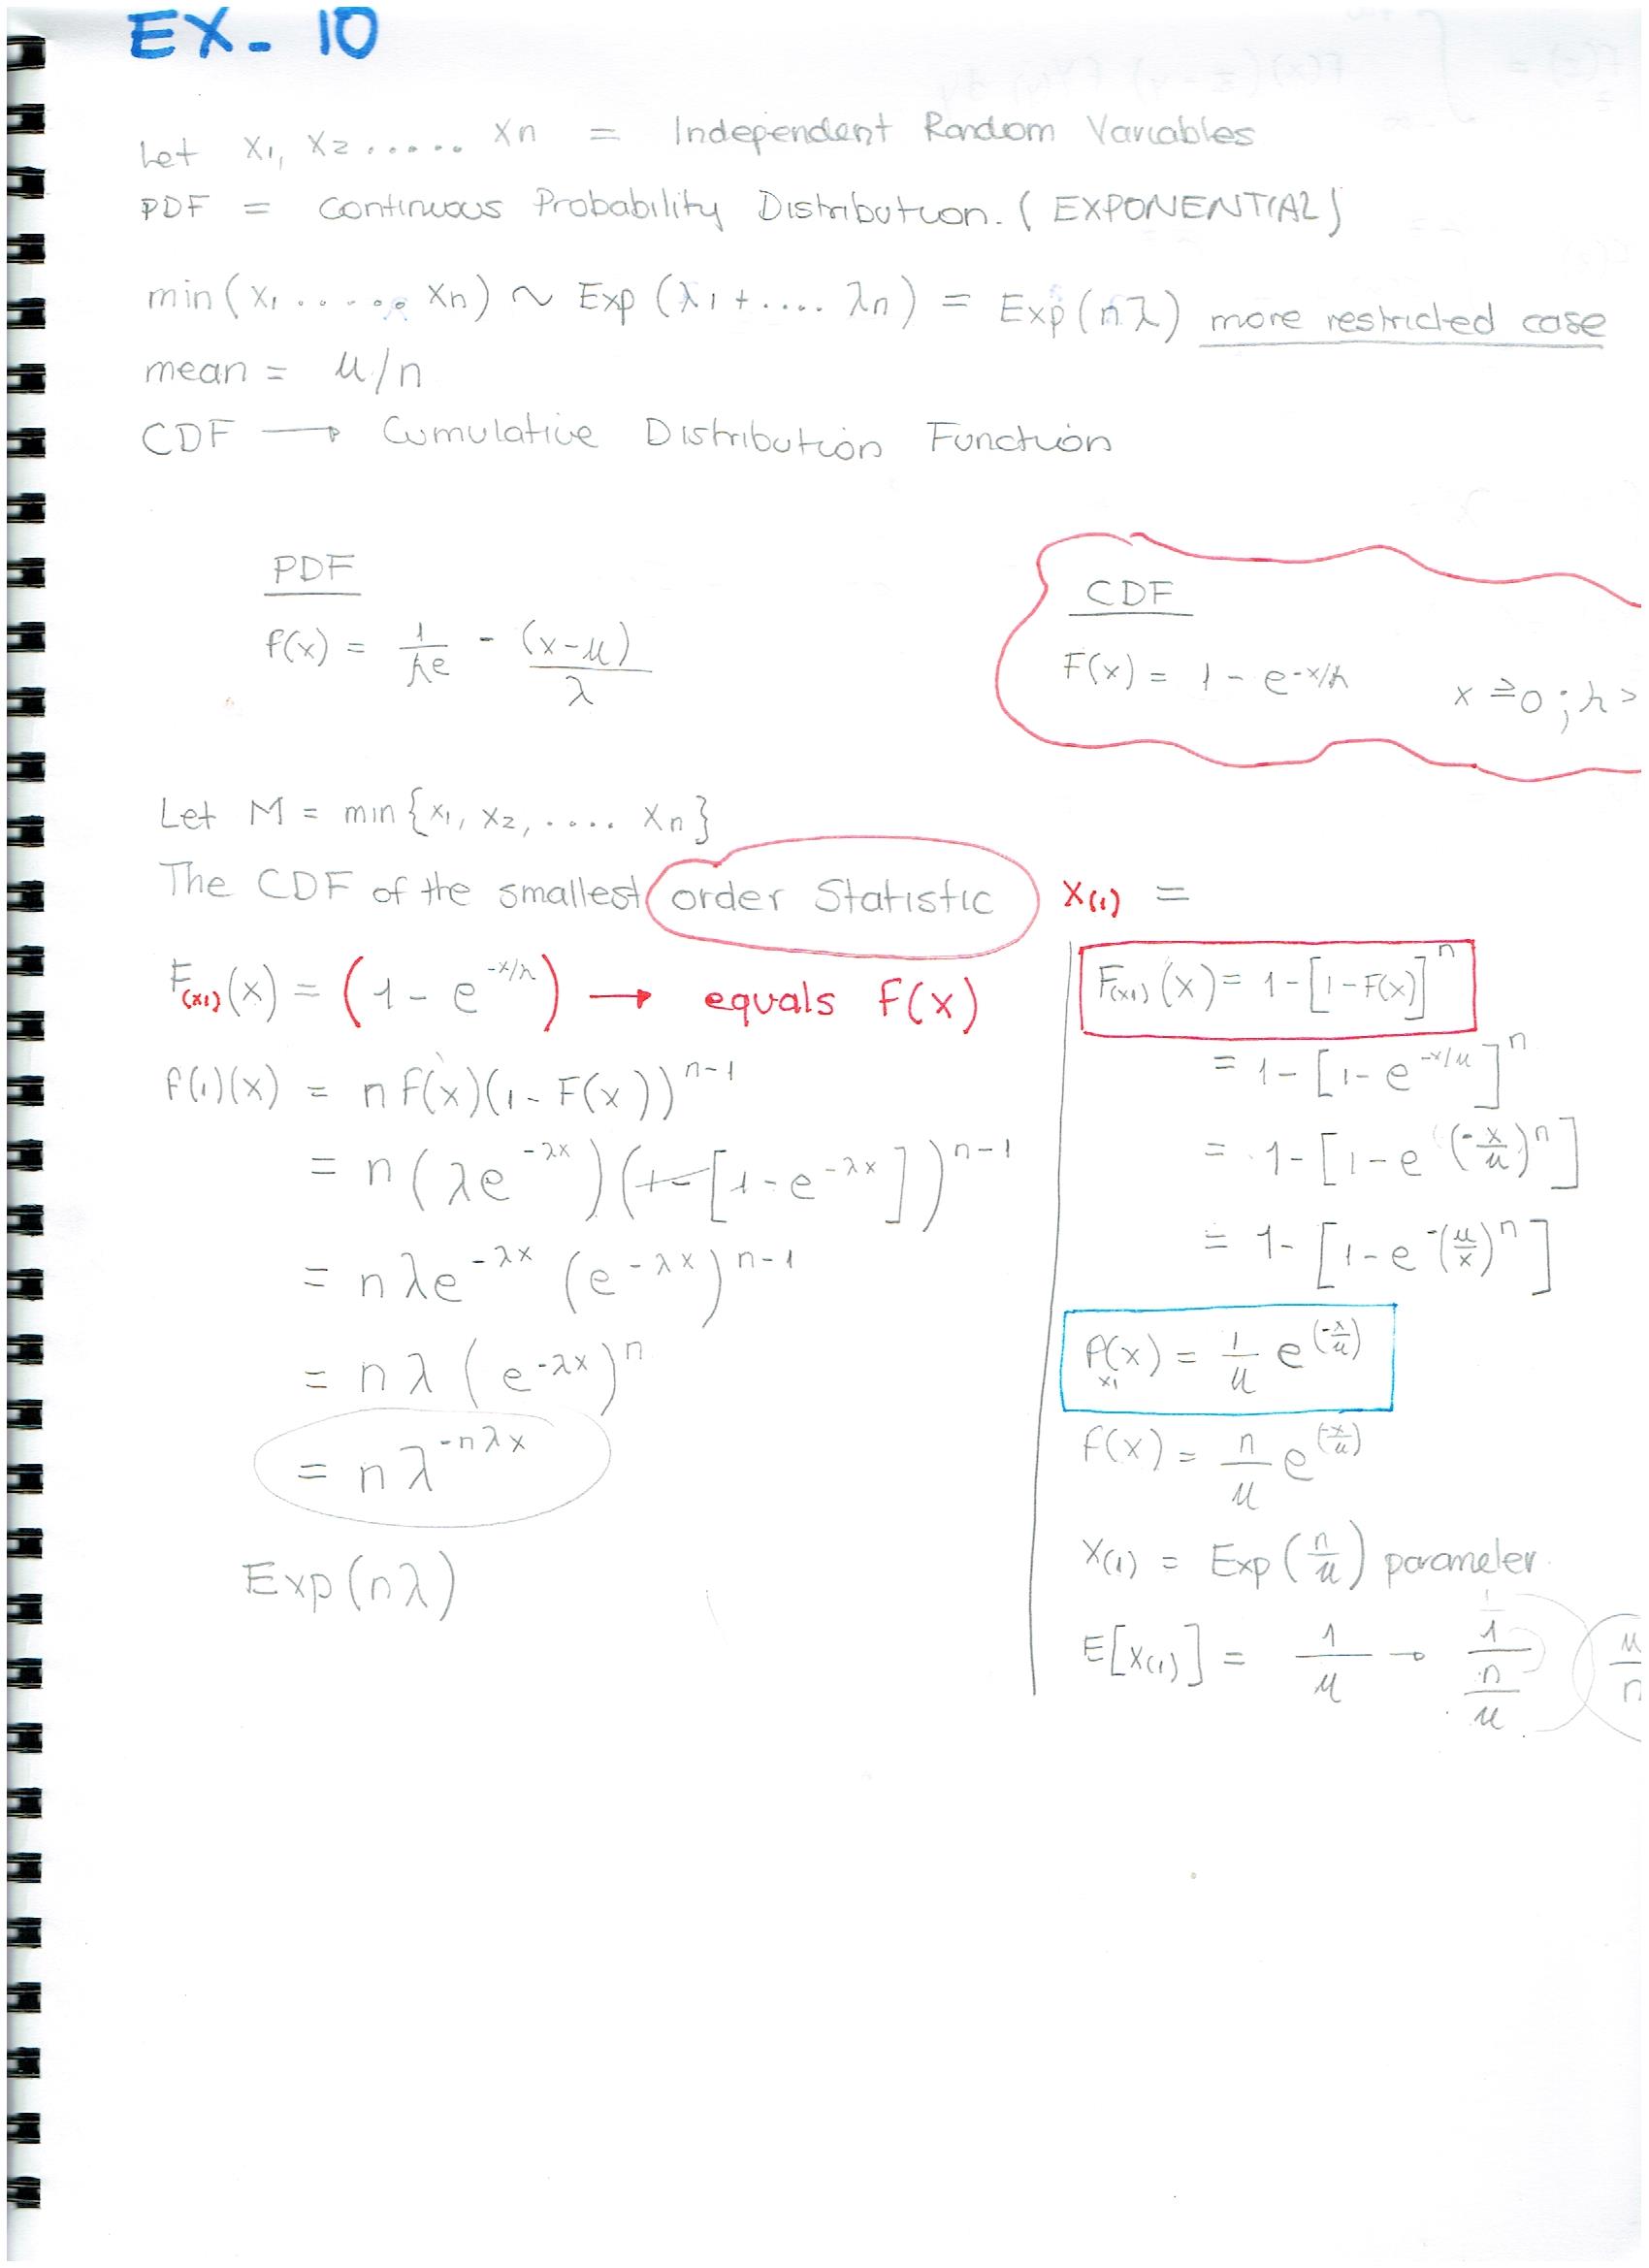 EX- 10
Let X1, X2 ..... Xn = Independent Random Variables
PDF = Continuous Probability Distribution. (EXPONENTIAL)
min(X1 ...... Xn) ~ Exp (λ1 + .... λn) = Exp(nλ) more restricted case
mean = μ/n
CDF → Cumulative Distribution Function
PDF
f(x) = 1/λe - (x-μ)/λ
CDF
F(x) = 1 - e^-x/λ x ≥ 0 ; λ >
Let M = min{x1, x2, .... Xn}
The CDF of the smallest order Statistic X(1) =
F(x1)(x) = (1 - e^-x/λ) → equals F(x)
f(1)(x) = n f(x)(1 - F(x))^n-1
= n(λe^-λx)(1-[1-e^-λx])^n-1
= nλe^-λx (e^-λx)^n-1
= nλ(e^-λx)^n
= nλ^-nλx
Exp(nλ)
F(x1)(x) = 1-[1-F(x)]^n
= 1-[1-e^-x/μ]^n
= 1-[1-e^(-x/μ)^n]
= 1-[1-e^-(μ/x)^n]
f x1(x) = 1/μ e^(-x/μ)
f(x) = n/μ e^(-x/μ)
X(1) = Exp(n/μ) parameter.
E[X(1)] = 1/μ → 1/(n/μ) μ/n